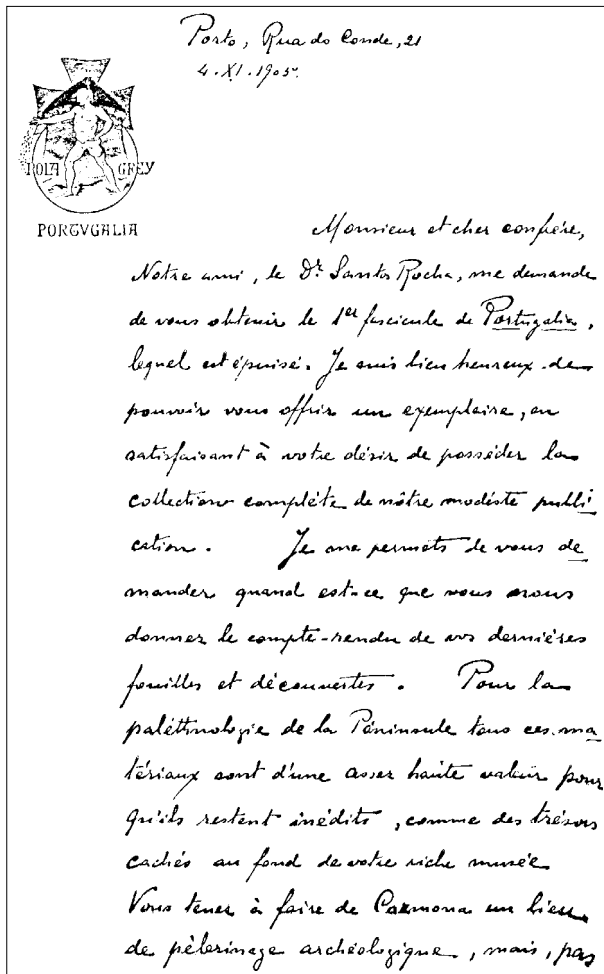 Porto, Rua do Conde, 21
4.XI.1905.
POLA GREY
PORTVGALIA
Monsieur et cher confrère,
Notre ami, le Dr. Santos Rocha, me demande
de vous obtenir le 1er fascicule de Portugalia,
lequel est épuisé. Je suis bien heureux de
pouvoir vous offrir un exemplaire, en
satisfaisant à votre désir de posséder la
collection complète de nôtre modéste publi
cation. Je me permets de vous de
mander quand est-ce que vous nous
donnez le compte-rendu de vos dernières
fouilles et découvertes. Pour la
paléthnologie de la Péninsule tous ces ma
tériaux sont d'une assez haute valeur pour
qu'ils restent inédits, comme des trésors
cachés au fond de votre riche musée
Vous tenez à faire de Carmona un lieu
de pèlerinage archéologique, mais, pas